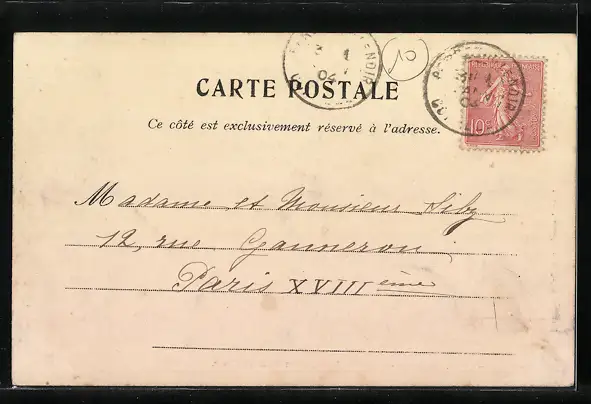 10
CARTE POSTALE
Ce côté est exclusivement réservé à l'adresse.
10c
04
04
Madame et Monsieur
12, rue Ganneron
Paris XVIII ème